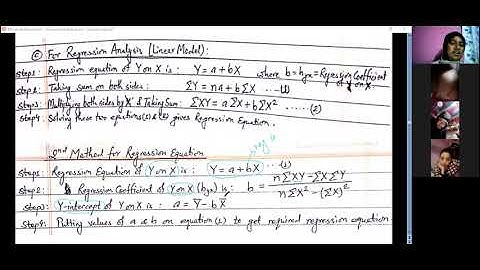 © For Regression Analysis [Linear Model]:
Step1: Regression equation of Y on X is : Y = a + bX where b = byx = Regression Coefficient Y on X
Step2: Taking sum on both sides : ΣY = na + bΣX ......(1)
Step3: Multiplying both sides by 'X' & Taking Sum: ΣXY = aΣX + bΣX² ......(2)
Step4: Solving these two equations (1) & (2) gives Regression Equation.
2nd Method for Regression Equation
Step1: Regression Equation of Y on X is : Y = a + bX ...(1)
Step2: Regression Coefficient of Y on X (byx) is: b = nΣXY - ΣXΣY / nΣX² - (ΣX)²
Step3: Y-intercept of Y on X is : a = Y̅ - bX̅
Step4: Putting values of a & b on equation (1) to get required regression equation